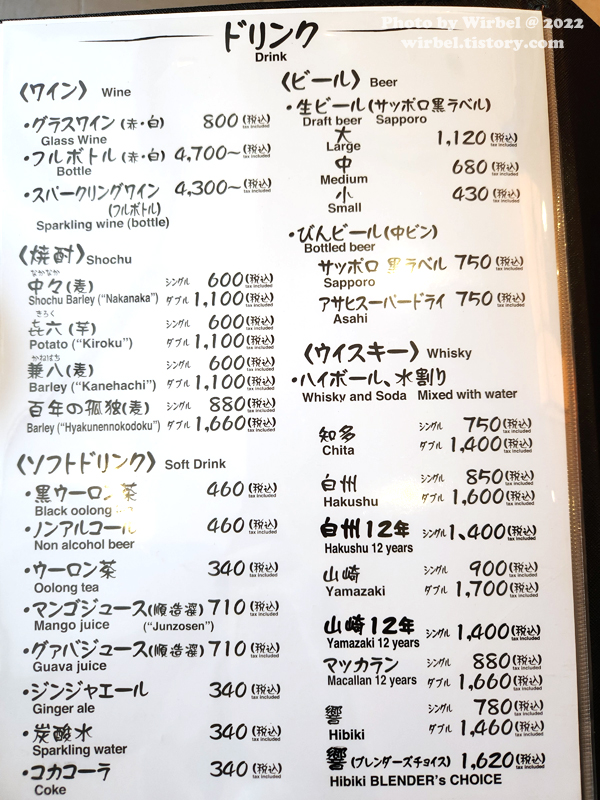 Photo by Wirbel @ 2022
wirbel.tistory.com
ドリンク
Drink
〈ワイン〉 Wine
・グラスワイン(赤・白) 800(税込)
tax included
Glass Wine
・フルボトル(赤・白) 4,700～(税込)
tax included
Bottle
・スパークリングワイン 4,300～(税込)
tax included
(フルボトル)
Sparkling wine (bottle)
〈焼酎〉Shochu
なかなか
中々(麦) シングル 600(税込)
tax included
Shochu Barley ("Nakanaka") ダブル 1,100(税込)
tax included
きろく
㐂六(芋) シングル 600(税込)
tax included
Potato ("Kiroku") ダブル 1,100(税込)
tax included
かねはち
兼八(麦) シングル 600(税込)
tax included
Barley ("Kanehachi") ダブル 1,100(税込)
tax included
百年の孤独(麦) シングル 880(税込)
tax included
Barley ("Hyakunennokodoku") ダブル 1,660(税込)
tax included
〈ソフトドリンク〉 Soft Drink
・黒ウーロン茶 460(税込)
tax included
Black oolong
・ノンアルコール 460(税込)
tax included
Non alcohol beer
・ウーロン茶 340(税込)
tax included
Oolong tea
・マンゴジュース(順造選) 710(税込)
tax included
Mango juice ("Junzosen")
・グァバジュース(順造選) 710(税込)
tax included
Guava juice
・ジンジャエール 340(税込)
tax included
Ginger ale
・炭酸水 340(税込)
tax included
Sparkling water
・コカコーラ 340(税込)
tax included
Coke
〈ビール〉 Beer
・生ビール(サッポロ黒ラベル)
Draft beer Sapporo
大 1,120(税込)
tax included
Large
中 680(税込)
tax included
Medium
小 430(税込)
tax included
Small
・びんビール(中ビン)
Bottled beer
サッポロ 黒ラベル 750(税込)
tax included
Sapporo
アサヒスーパードライ 750(税込)
tax included
Asahi
〈ウイスキー〉 Whisky
・ハイボール、水割り
Whisky and Soda Mixed with water
知多 シングル 750(税込)
tax included
Chita ダブル 1,400(税込)
tax included
白州 シングル 850(税込)
tax included
Hakushu ダブル 1,600(税込)
tax included
白州12年 シングル 1,400(税込)
tax included
Hakushu 12 years
山崎 シングル 900(税込)
tax included
Yamazaki ダブル 1,700(税込)
tax included
山崎12年 シングル 1,400(税込)
tax included
Yamazaki 12 years
マッカラン シングル 880(税込)
tax included
Macallan 12 years ダブル 1,660(税込)
tax included
響 シングル 780(税込)
tax included
Hibiki ダブル 1,460(税込)
tax included
響(ブレンダーズチョイス) 1,620(税込)
tax included
Hibiki BLENDER's CHOICE